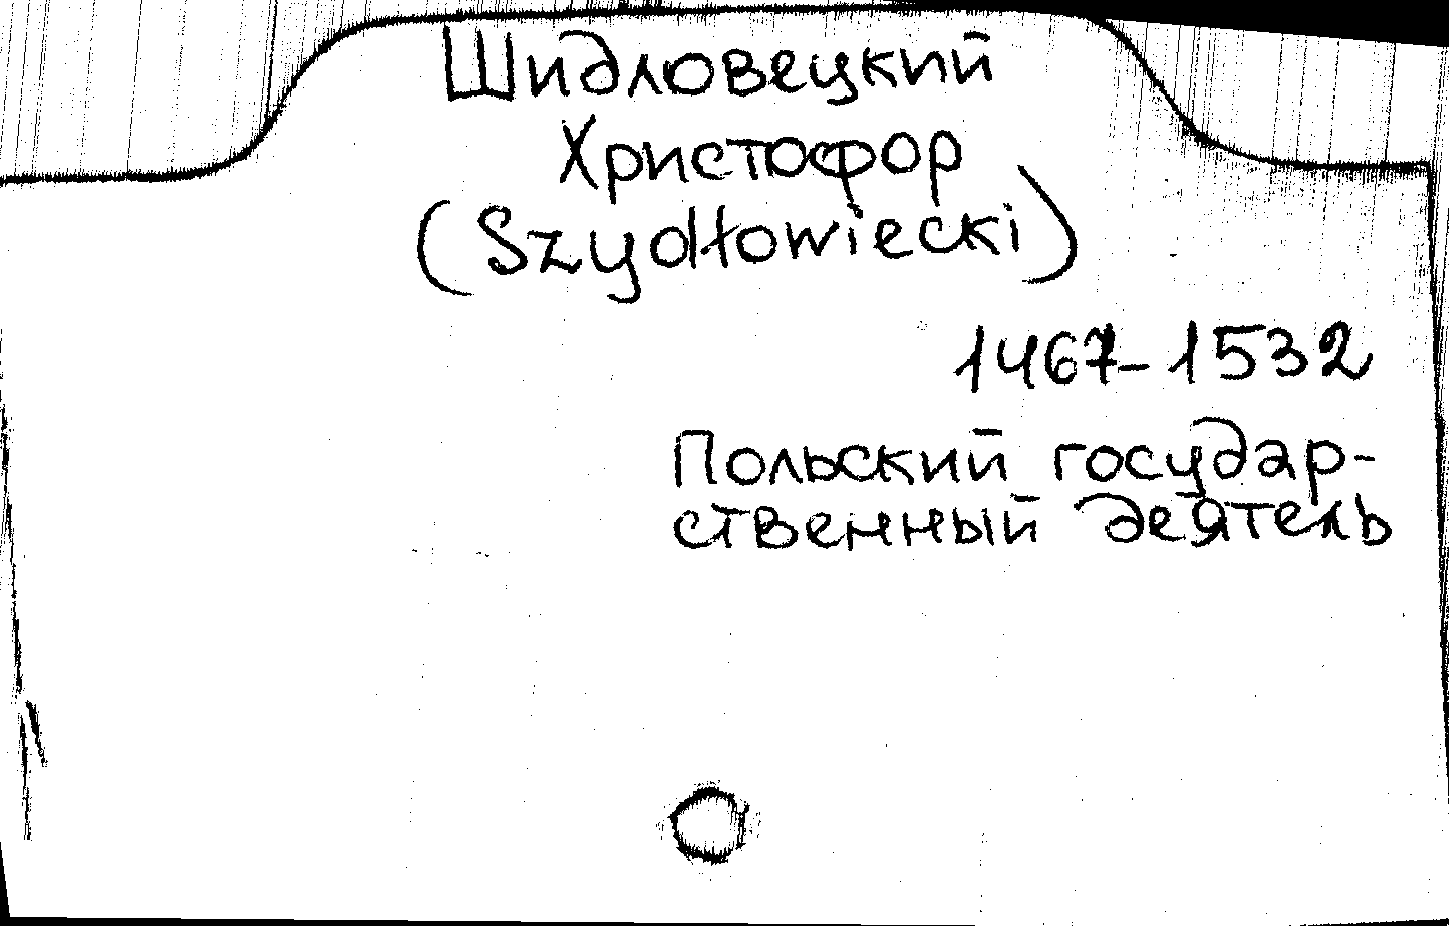 Шидловецкий
Христофор
(Szydłowiecki)
1467-1532
Польский государ-
ственный деятель